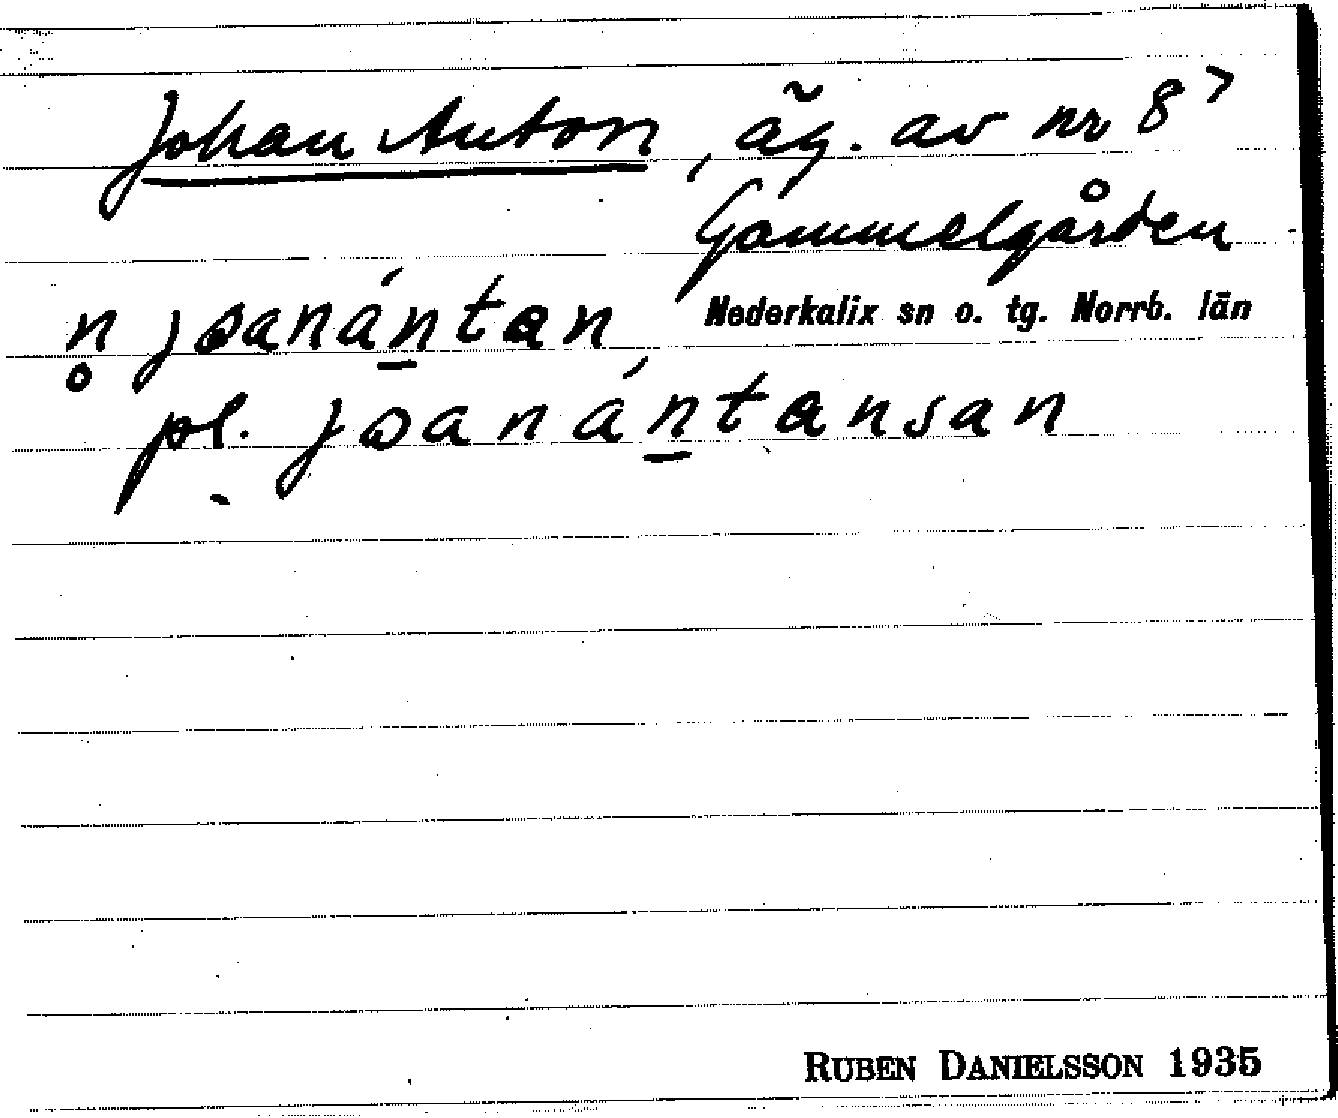 Johan Anton, äg. av nr 8⁷
Gammelgården
Nederkalix sn o. tg. Norrb. län
n̥ jɷanántan,
pl. jɷanántansan
RUBEN DANIELSSON 1935